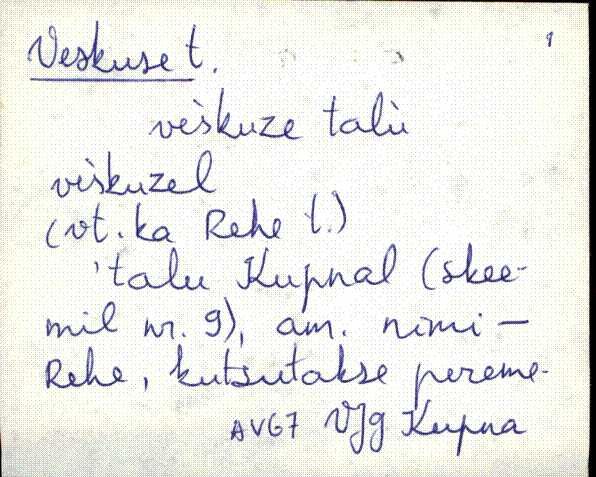 Veskuse t. 9
vèskuze talù
vèskuzel
(vt. ka Rehe t.)
'talu Kupnal (skee-
mil nr. 9), am. nimi -
Rehe, kutsutakse pereme-
AV67 VJg Kupna